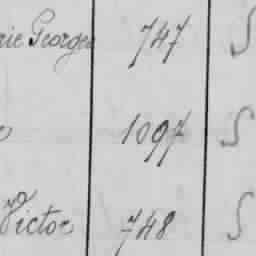 rie Georges 747 S
1097 S
Victor 748 S